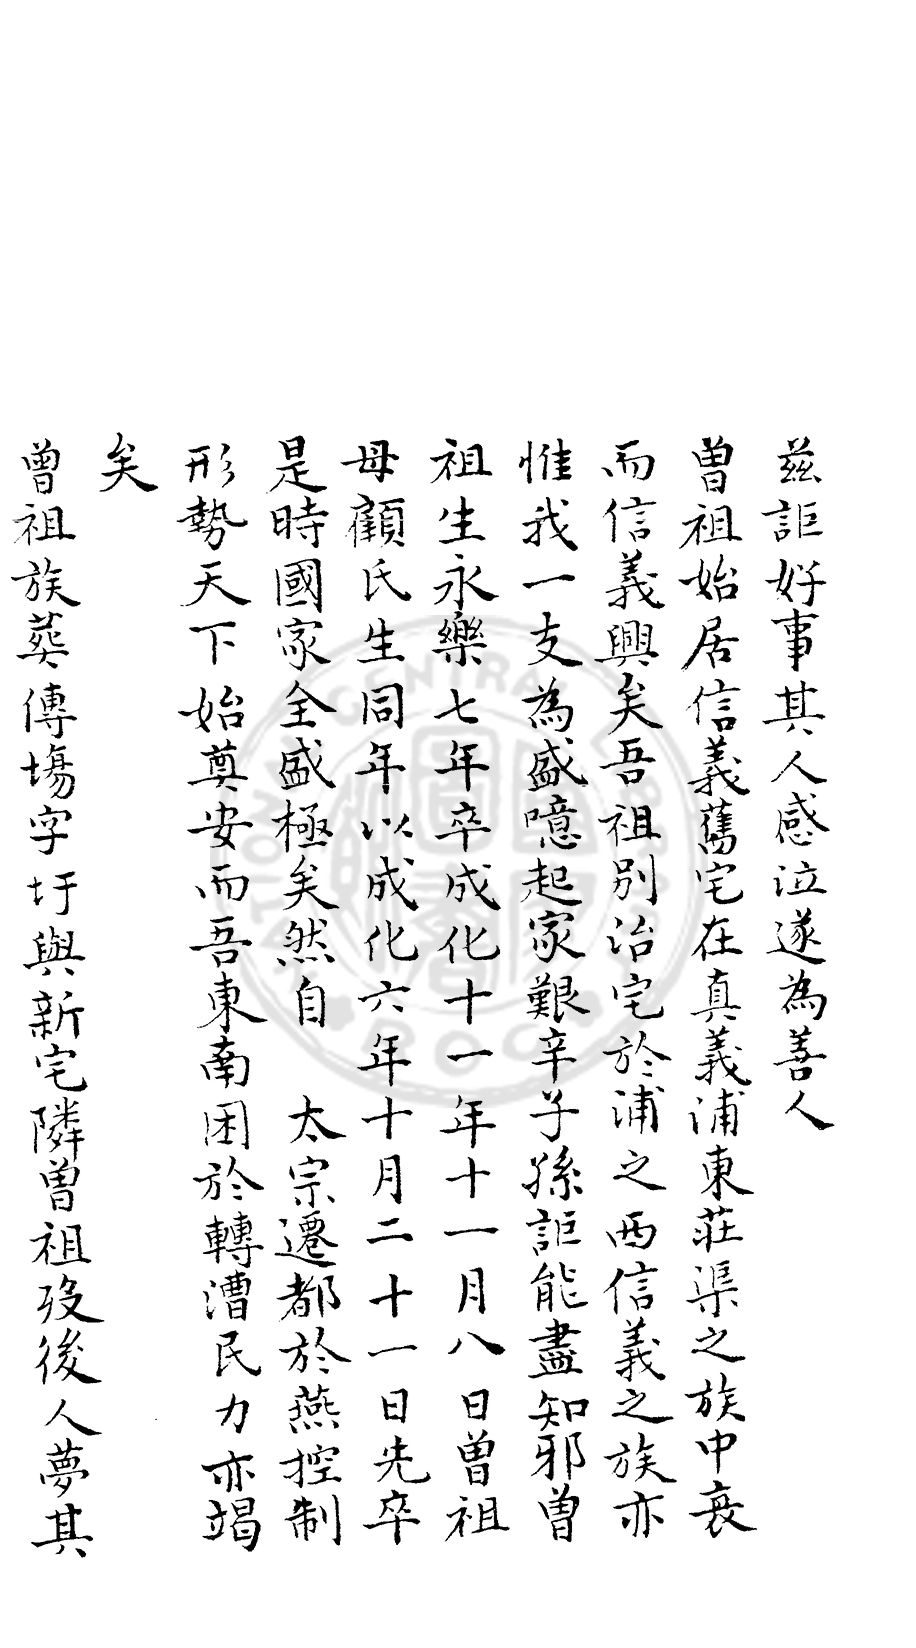 茲詎好事其人感泣遂為善人
曽祖始居信義舊宅在真義浦東莊渠之族中衰
而信義興矣吾祖別治宅於浦之西信義之族亦
惟我一支為盛噫起家艱辛子孫詎能盡知邪曽
祖生永樂七年卒成化十一年十一月八日曽祖
母顧氏生同年以成化六年十月二十一日先卒
是時國家全盛極矣然自 太宗遷都於燕控制
形勢天下始奠安而吾東南困於轉漕民力亦竭
矣
曽祖族葬傅塲字圩與新宅隣曽祖歿後人夢其
CENTRAL